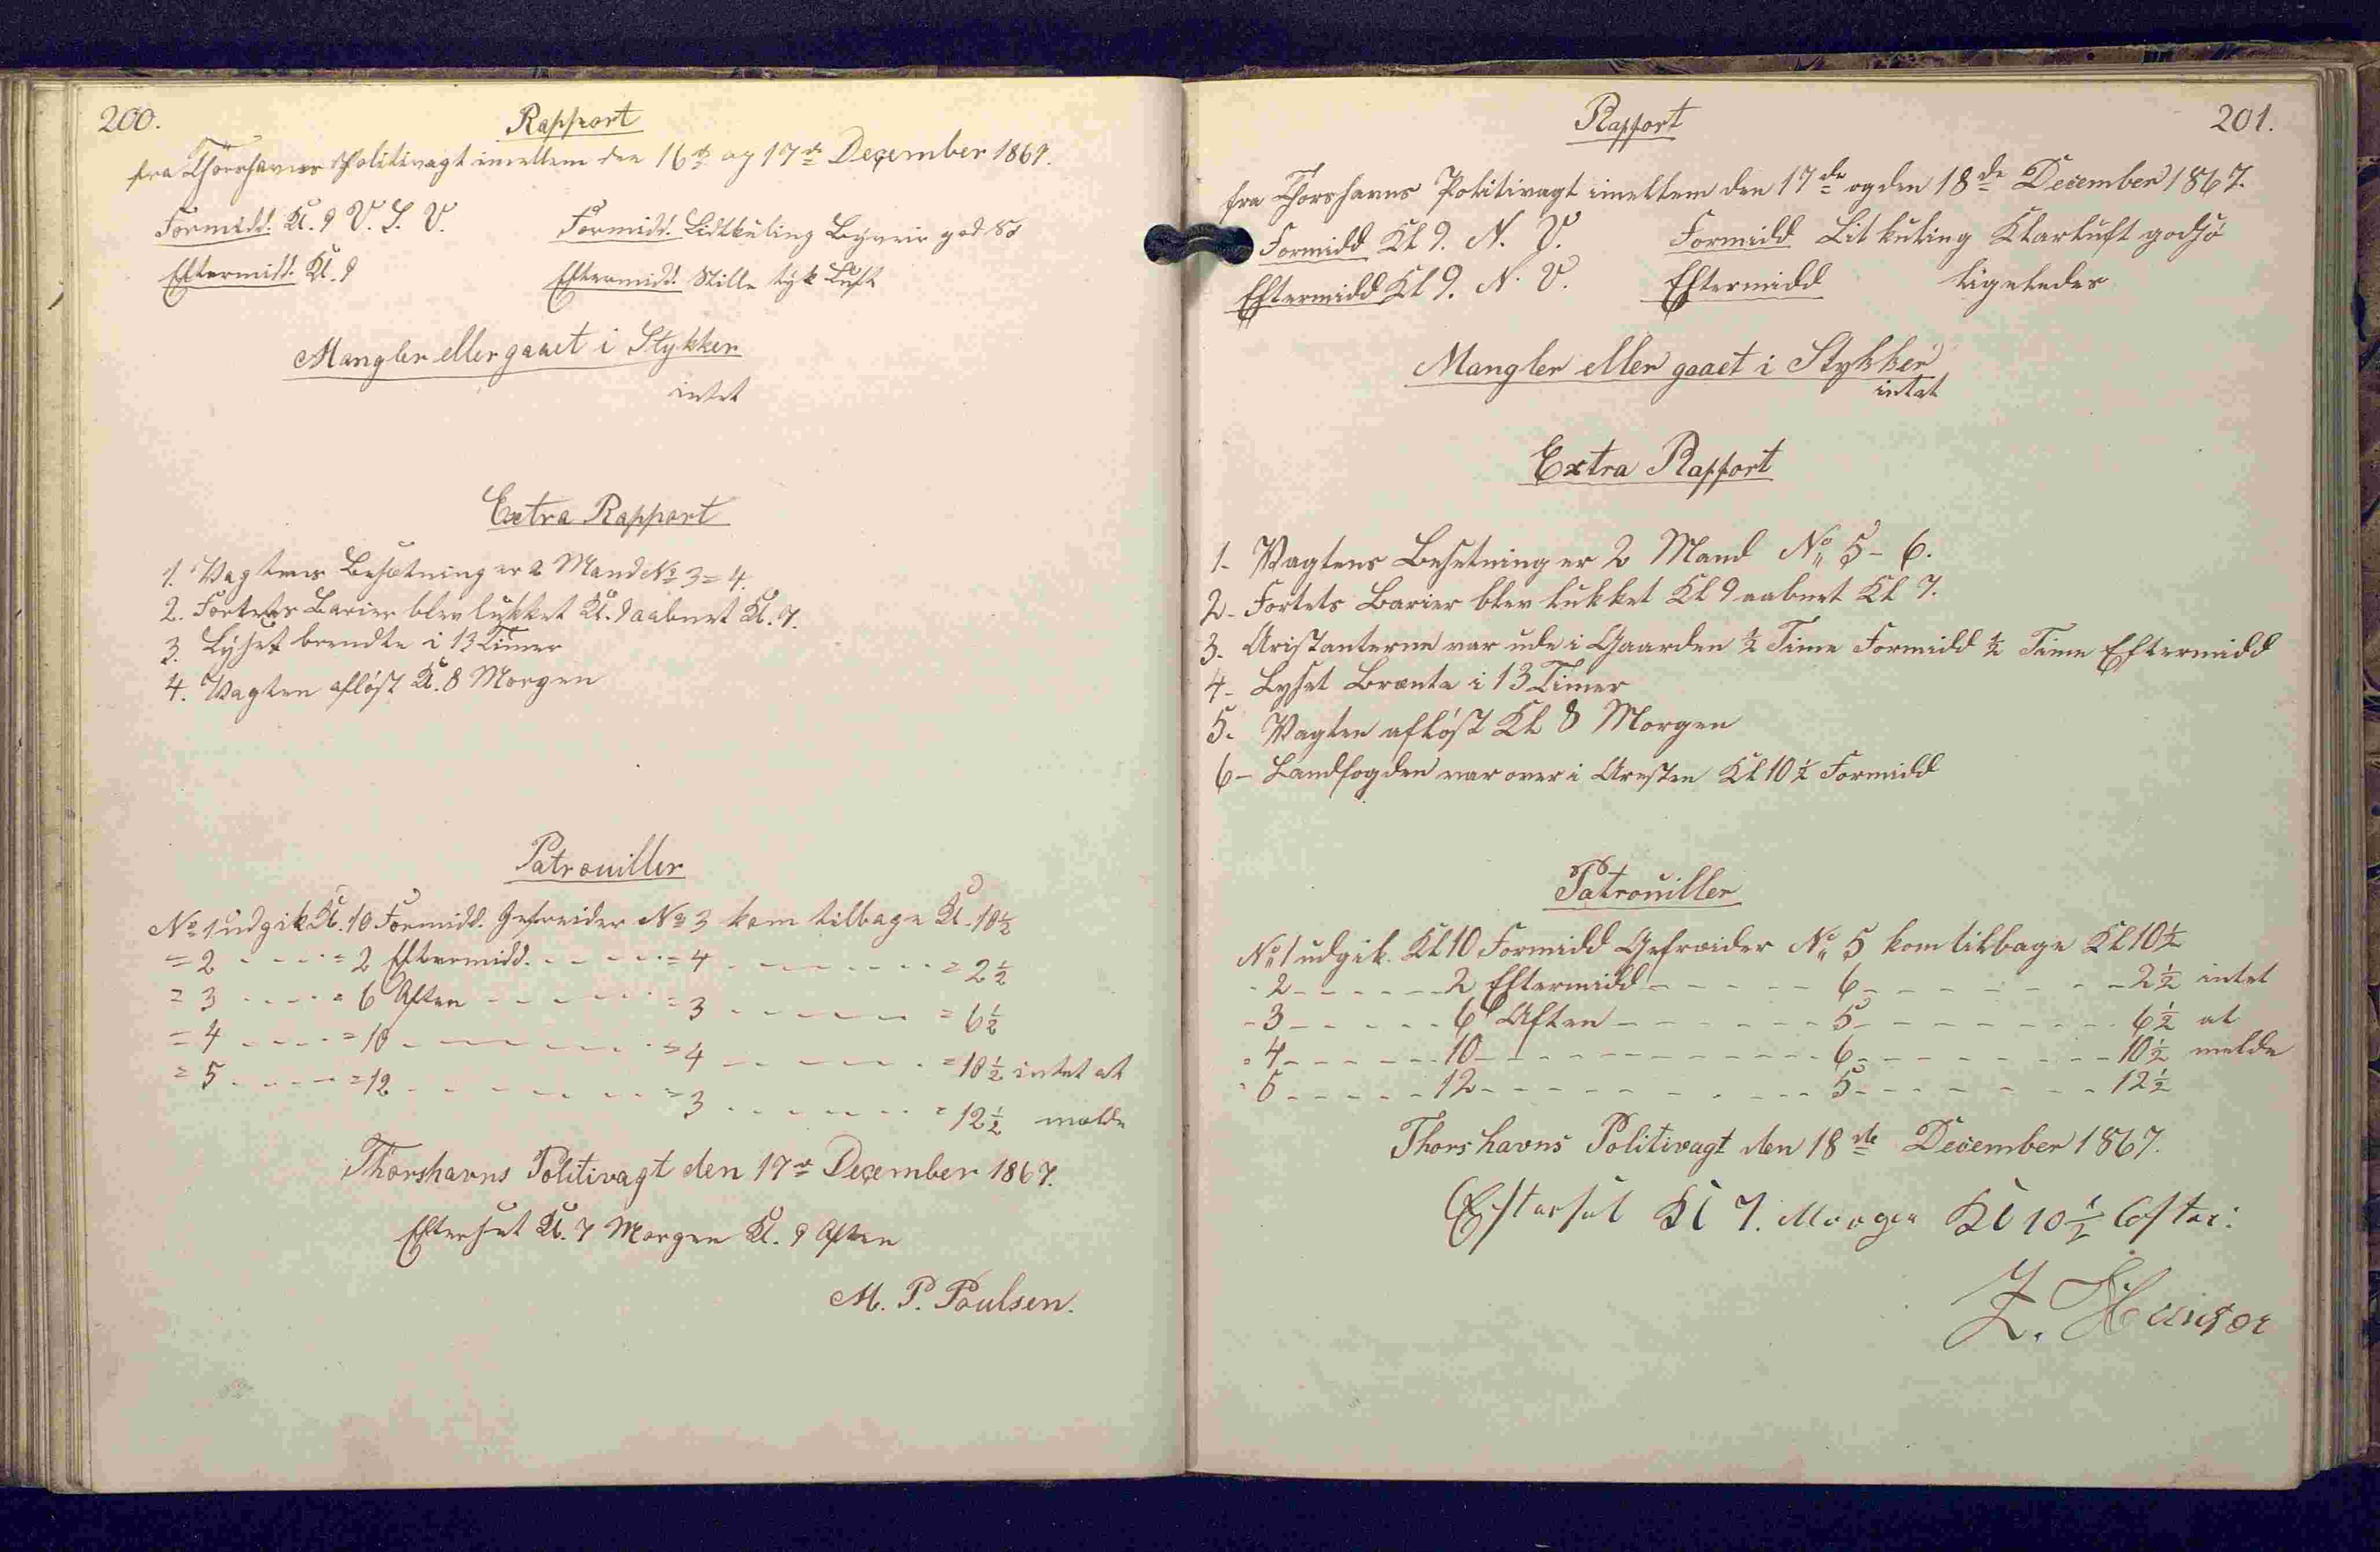 200.
Rapport
fra Thorshavns Politivagt imellem den 16de og 17de December 1867.
Formidd. Kl. 9 V. S. V. Formidd. Lidtkuling god Sö
Eftermidd. Kl. 9 Eftermidd. Stille tyk Luft
Mangler eller gaaet i Stykker
intet
Extra Rapport
1. Vagtens Besætning er 2 Mand No 3 = 4.
2. Fortets Barier blev lukket Kl. 9 aabnet Kl. 7.
3. Lyset brendte i 13 Timer
4. Vagten aflöst Kl. 8 Morgen
Patrouiller
No 1 udgik Kl. 10 Formidd. Gefreider No 3 kom tilbage Kl. 10½
= 2 - - - - = 2 Eftermidd. - - - - = 4 - - - - - - = 2½
= 3 - - - - = 6 Aften - - - - - = 3 - - - - - - = 6½
= 4 - - - - = 10 - - - - - - - = 4 - - - - - - = 10½ intet at
= 5 - - - - = 12 - - - - - - - = 3 - - - - - - = 12½ melde
Thorshavns Politivagt den 17de December 1867.
Efterset Kl. 7 Morgen Kl. 9 Aften
M. P. Poulsen.
201.
Rapport
fra Thorshavns Politivagt imellem den 17de og den 18de December 1867.
Formidd Kl 9. N. V. Formidd Lit kuling Klarluft godsö
Eftermidd Kl 9. N. V. Eftermidd ligeledes
Mangler eller gaaet i Stykker
intet
Extra Rapport
1- Vagtens Besetning er 2 Mand No 5 - 6.
2- Fortets Barier blev lukket Kl 9 aabnet Kl 7.
3- Aristanterne var ude i Gaarden ½ Time Formidd ½ Time Eftermidd
4- Lyset Brænte i 13 Timer
5. Vagten aflöst Kl 8 Morgen
6- Landfogden var over i Aresten Kl 10½ Formidd
Patrouiller
No 1 udgik Kl 10 Formidd Gefreider No 5 kom tilbage Kl 10½
- 2 - - - - - 2 Eftermidd - - - - - 6 - - - - - - - 2½ intet
- 3 - - - - - 6 Aften - - - - - - 5 - - - - - - - 6½ at
- 4 - - - - - 10 - - - - - - - - - 6 - - - - - - - 10½ melde
- 5 - - - - - 12 - - - - - - - - - 5 - - - - - - - 12½
Thorshavns Politivagt den 18de December 1867.
Efterset Kl 7. Morgen Kl 10½ After:
Z. Hansen